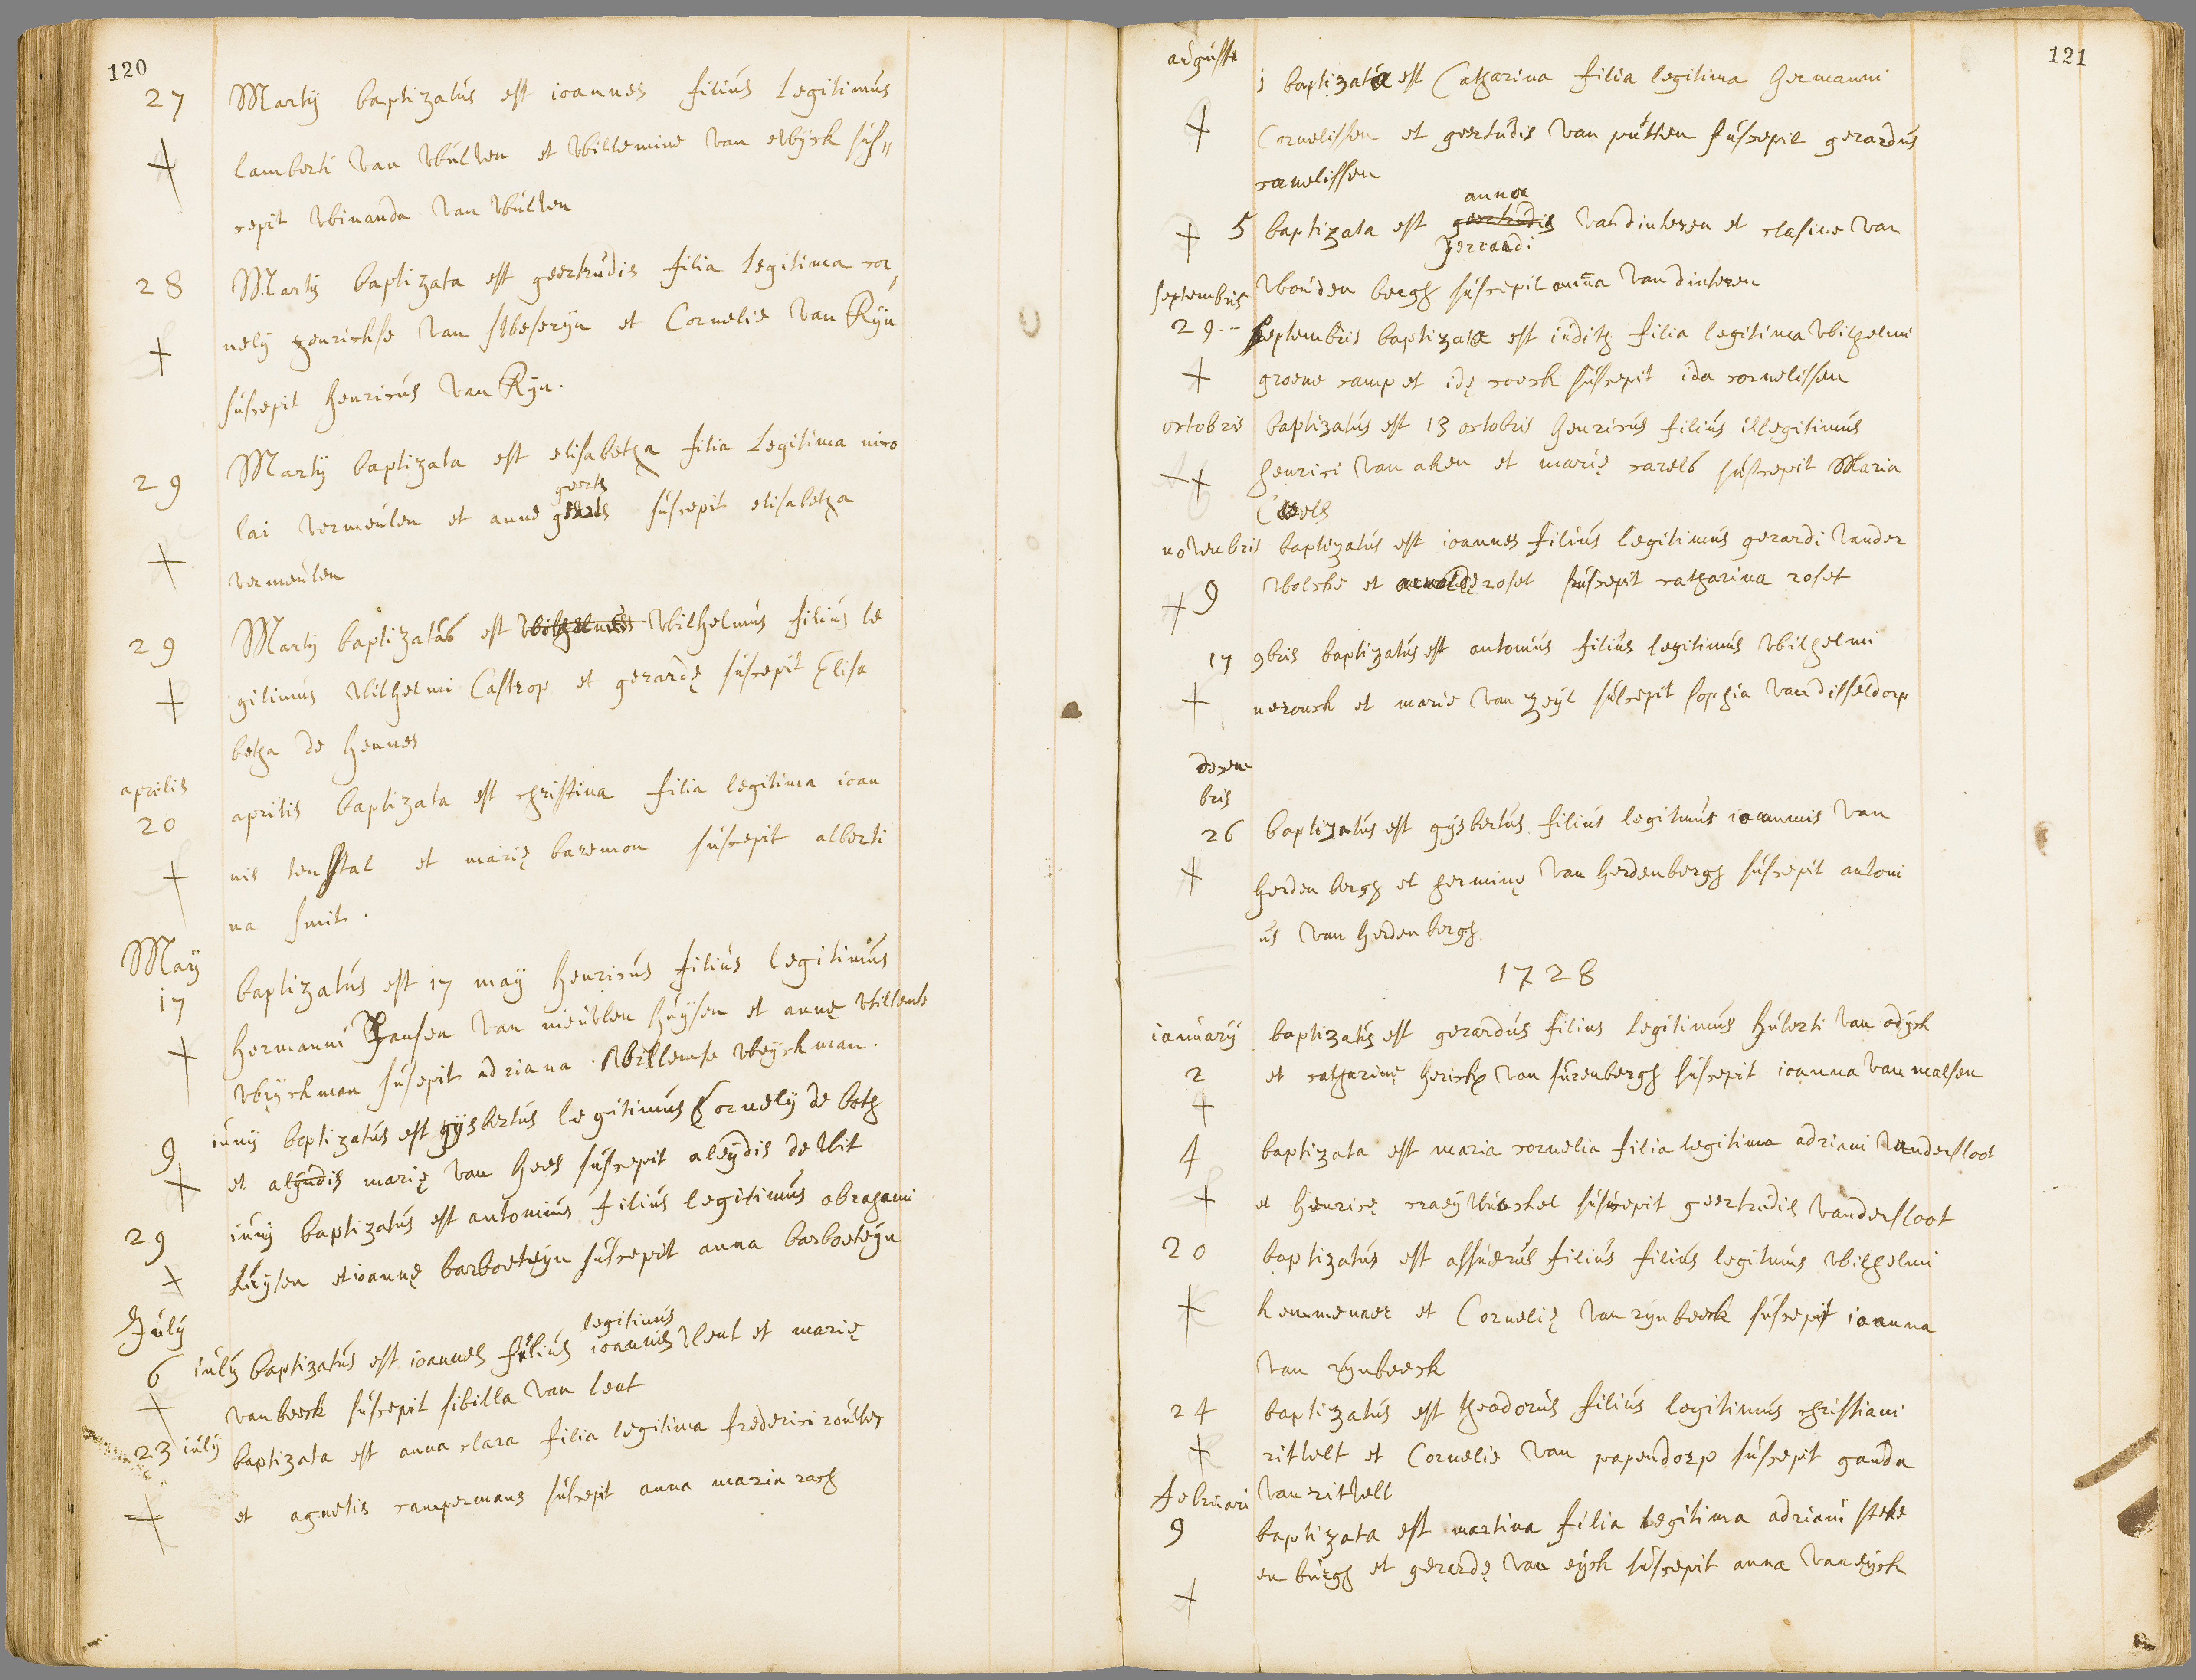 120
27 Martij baptizatús est ioannes filiús Legitimús
lamberti van Wúlven et Willemine van ewÿck sús„
cepit Winanda van Wúlven
28 Martij baptizata est geertrúdis filia Legitima cor
nelij henrickse van et Cornelie van Rijn
súscepit henricús van Rijn.
29 Martij baptizata est elisabetha filia Legitima nico
lai vermeúlen et anne geerts súscepit elisabetha
vermeúlen
29 Martij baptizatús est Wilhelmús filiús le
gitimús Wilhelmi Castrop et gerardę súscepit Elisa
betha de hennes
aprilis
20 aprilis baptizata est christina filia legitima ioan
nis tenstal et marię baremon súscepit alberti
na smit.
Maÿ
17 baptizatús est 17 maÿ henricús filiús legitimús
hermanni Jansen van nieúwen húÿsen et annę Willemse
Wÿckman súscepit adriana Willemse Weÿckman.
9 iúnij baptizatús est gijsbertús legitimús Cornelij de both
et marię van hees súscepit aleÿdis de Wit
29 iúnij baptizatús est antoniús filiús legitimús abrahami
et ioannę barboeteÿn súscepit anna barboeteÿn
Júlij
legitimús
6 iúlij baptizatús est ioannes filiús ioannis Vlent et marię
van beeck súscepit sibilla van lent
23 iúlij baptizata est anna clara filia legitima frederici
et agnetis campermans súscepit anna maria rach
121
aúgústi
j baptizata est Catharina filia legitima hermanni
Cornelissen et geertúdis van pútten súscepit gerardús
cornelissen
anna
5 baptizata est geertrúdis van dinteren et clasine van
gerrardi
septembris Woúden bergh súscepit anna van dinteren
29-- septembris baptizata est iúdith filia legitima Wilhelmi
groene camp et idę coeck súscepit ida cornelissen
octobris baptizatús est 13 octobris henricús filiús illegitimús
henrici van aken et marię carels súscepit Maria
Carels
novenbris baptizatús est ioannes filiús legitimús gerardi vander
9 Wolcke et roset súscepit catharina roset
17 9bris baptizatús est antoniús filiús legitimús Wilhelmi
et marie van zeÿl súscepit sophia van disseldorp
decem
bris
26 baptizatús est gÿsbertús filiús legitimús ioannnis van
herdenbergh et herminę van herdenbergh súscepit antoni
ús van herdenbergh.
1728
ianúarij baptizatús est gerardús filius Legitimús húberti van odÿck
2 et catharinę van súrenbergh súscepit ioanna van malsen
4 baptizata est maria cornelia filia legitima adriani vandersloot
et henricę súscepit geertrúdis vandersloot
20 baptizatús est assúerús filiús filiús legitimús Wilhelmi
kemmenaer et Cornelię van rijnbeeck súscepit ioanna
van rÿnbeeck
24 baptizatús est theodorús filiús legitimús christiani
rithelt et Cornelie van papendorp súscepit ganda
febrúari van rithelt
9 baptizata est martina filia legitima adriani steke
enbúrgh et gerardę van eÿck súscepit anna van eÿck